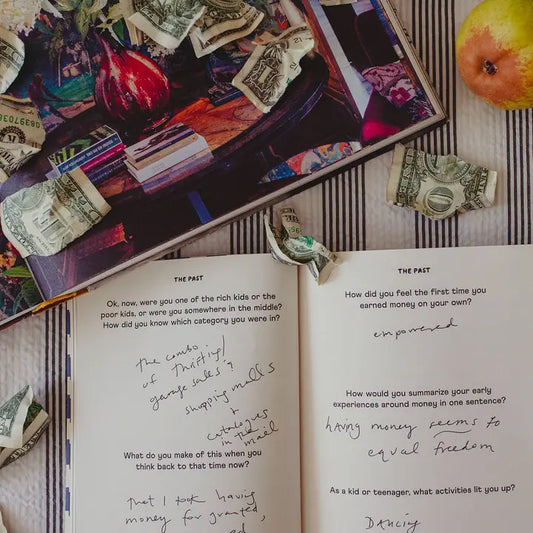 THE PAST
Ok, now, were you one of the rich kids or the
poor kids, or were you somewhere in the middle?
How did you know which category you were in?
the combo
of thrifting/
garage sales?
shopping malls
+
catalogues
in the mail
What do you make of this when you
think back to that time now?
that I took having
money for granted,
THE PAST
How did you feel the first time you
earned money on your own?
empowered
How would you summarize your early
experiences around money in one sentence?
having money seems to
equal freedom
As a kid or teenager, what activities lit you up?
DANCING